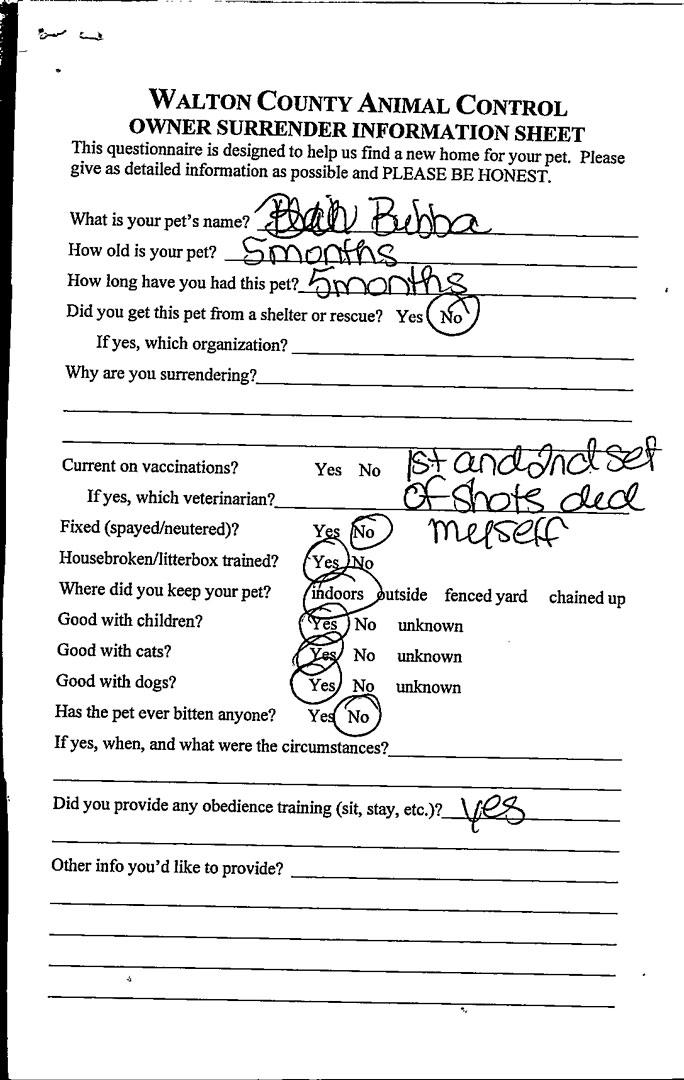 WALTON COUNTY ANIMAL CONTROL
OWNER SURRENDER INFORMATION SHEET
This questionnaire is designed to help us find a new home for your pet. Please
give as detailed information as possible and PLEASE BE HONEST.
What is your pet's name? Bubba
How old is your pet? 5months
How long have you had this pet? 5months
Did you get this pet from a shelter or rescue? Yes No
If yes, which organization?
Why are you surrendering?
Current on vaccinations? Yes No 1st and 2nd set
If yes, which veterinarian? of shots ded
Fixed (spayed/neutered)? Yes No myself
Housebroken/litterbox trained? Yes No
Where did you keep your pet? indoors outside fenced yard chained up
Good with children? Yes No unknown
Good with cats? Yes No unknown
Good with dogs? Yes No unknown
Has the pet ever bitten anyone? Yes No
If yes, when, and what were the circumstances?
Did you provide any obedience training (sit, stay, etc.)? yes
Other info you'd like to provide?